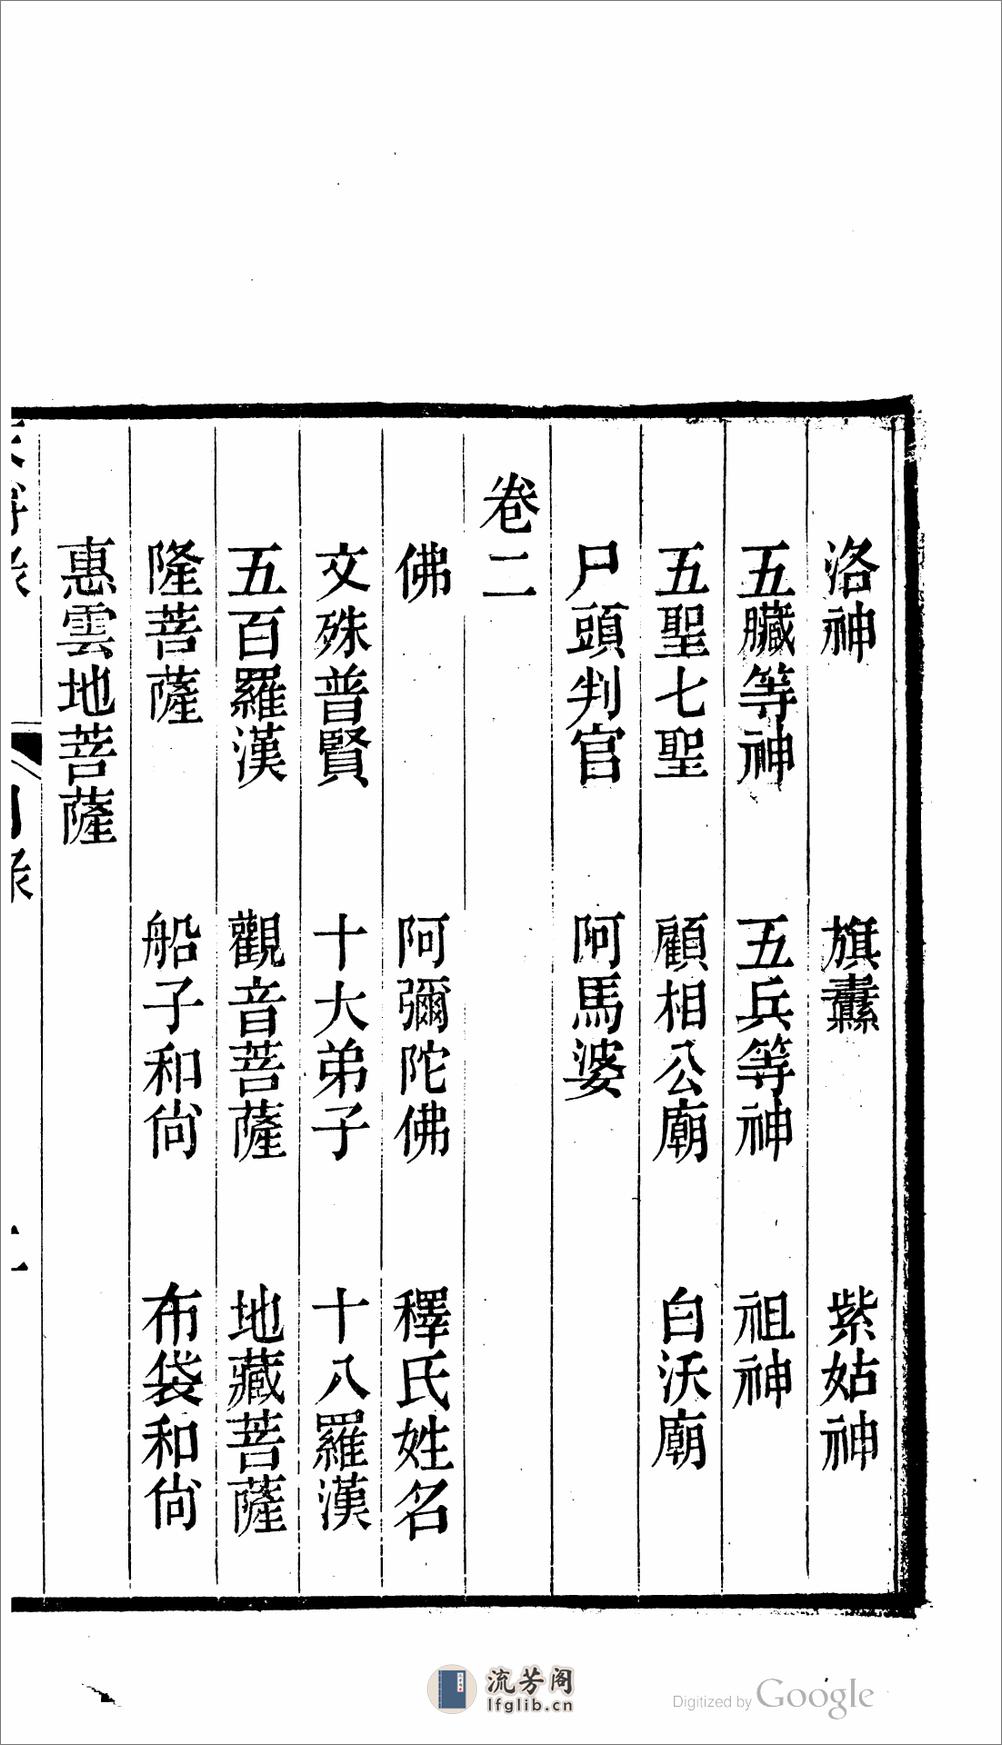 洛神　旗纛　紫姑神
五臟等神　五兵等神　祖神
五聖七聖　顧相公廟　白沃廟
尸頭判官　阿馬婆
卷二
佛　阿彌陀佛　釋氏姓名
文殊普賢　十大弟子　十八羅漢
五百羅漢　觀音菩薩　地藏菩薩
隆菩薩　船子和尙　布袋和尙
惠雲地菩薩
流芳阁
lfglib.cn
Digitized by Google